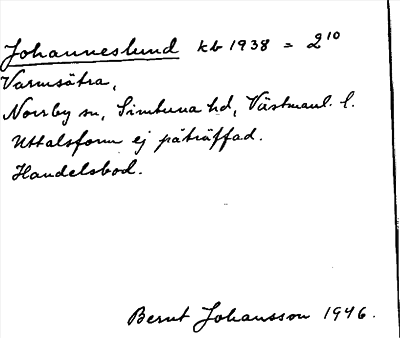 Johanneslund kb 1938 = 2¹⁰
Varmsätra,
Norrby sn, Simtuna hd, Västmanl. l.
Uttalsform ej påträffad.
Handelsbod.
Bernt Johansson 1946.